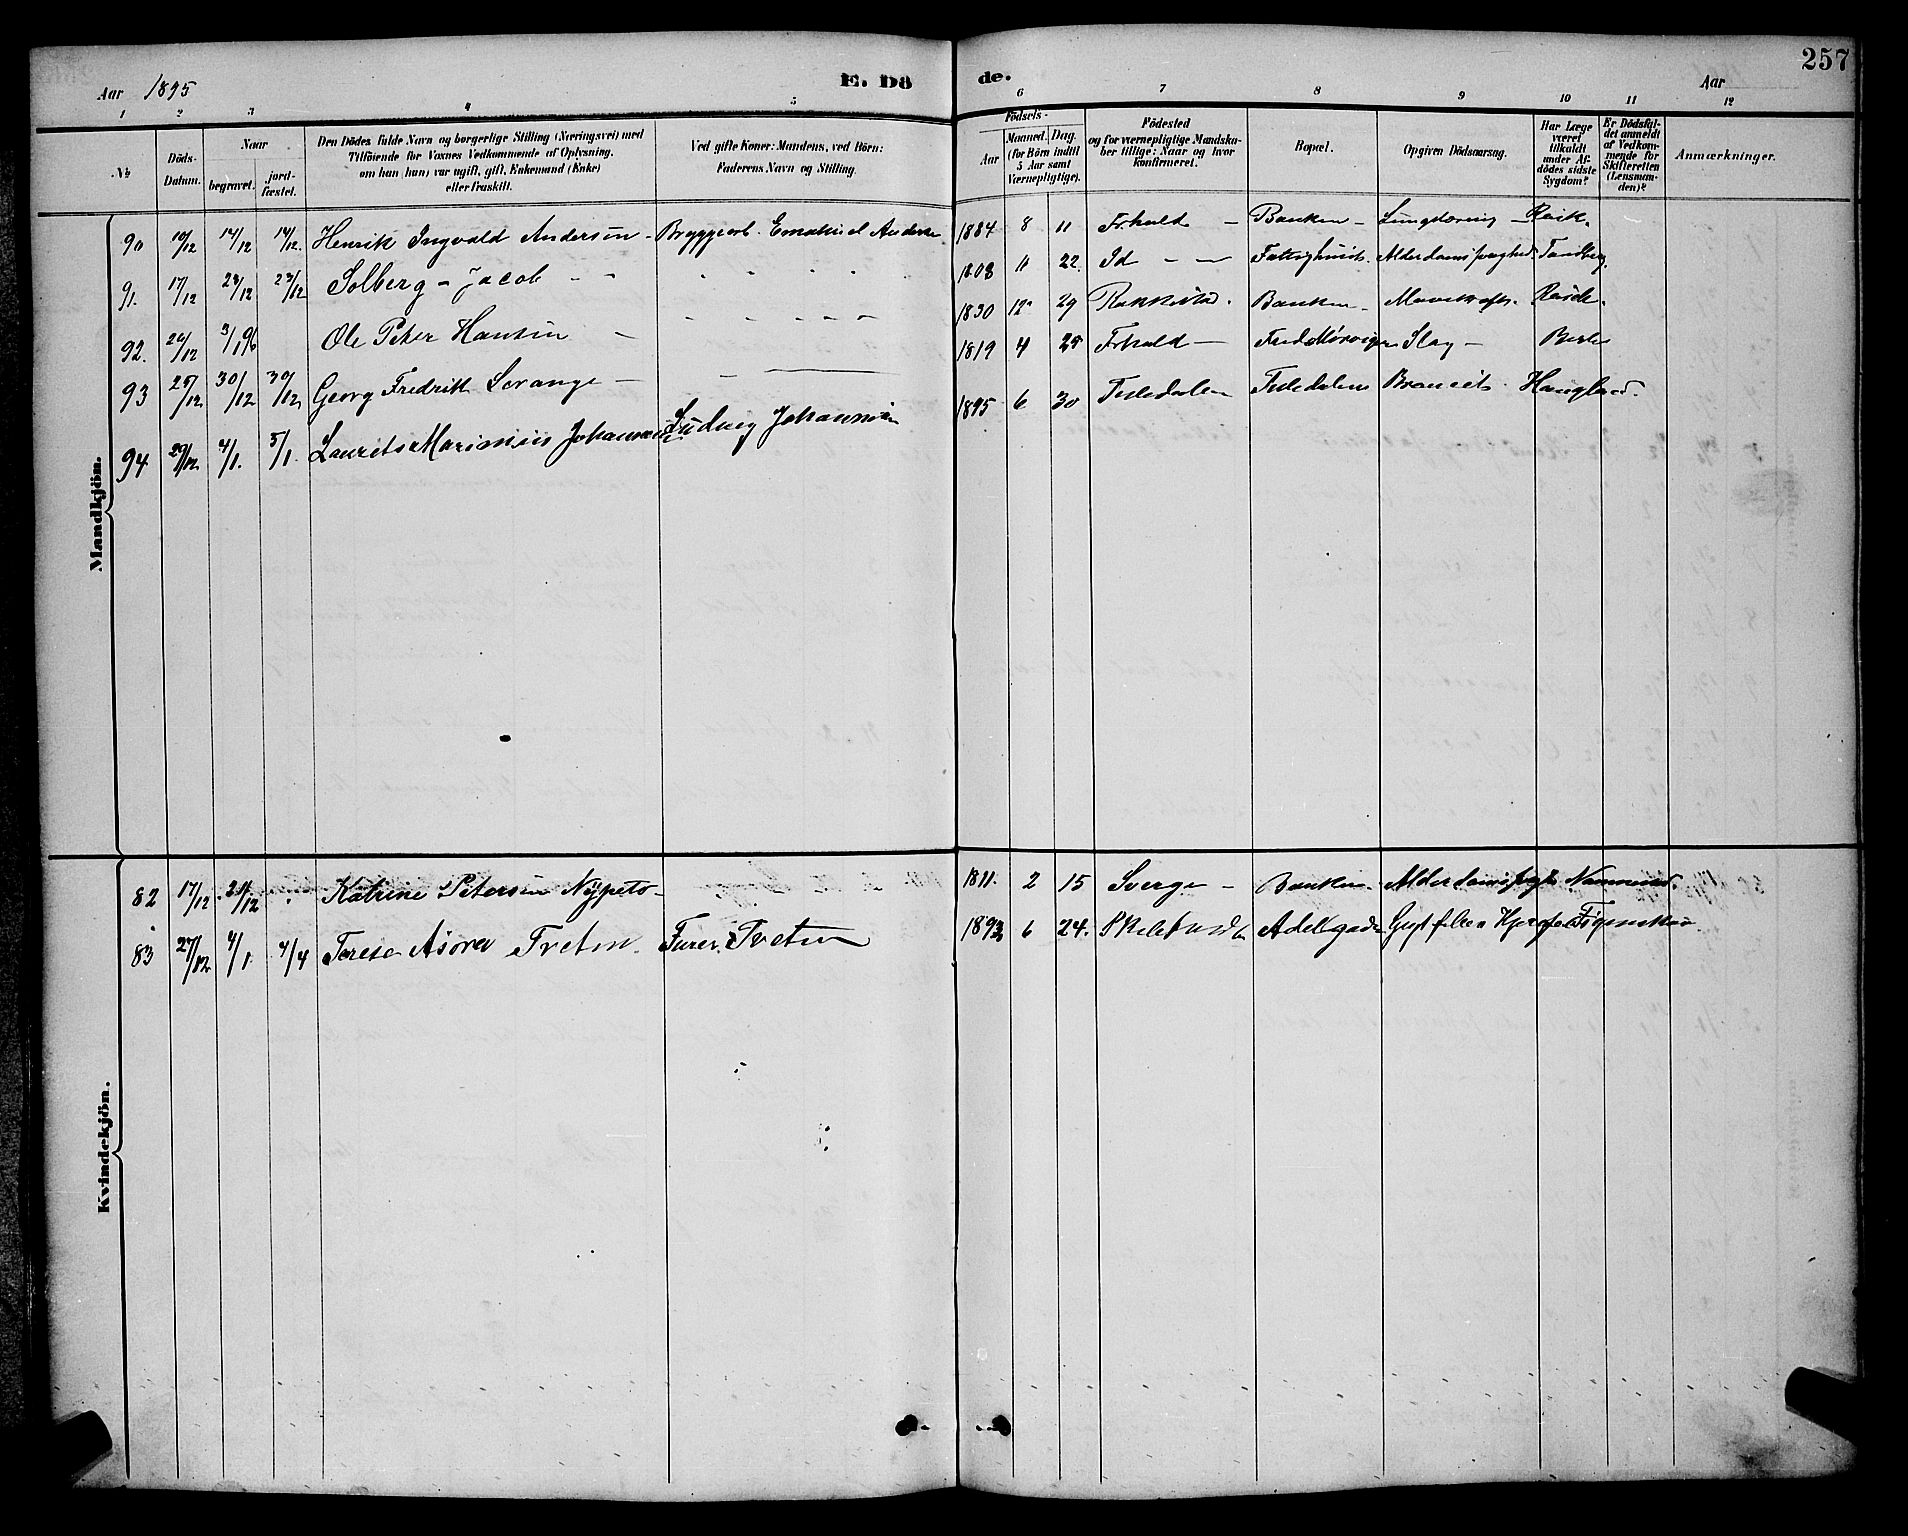 257
Aar 1895
E. Dö
de.
Aar
1 2 3 4 5 6 7 8 9 10 11 12
No
Döds-Datum.
Naar
begravet.
jord-fæstet.
Den Dödes fulde Navn og borgerlige Stilling (Næringsvei) med
Tilföiende for Voxnes Vedkommende af Oplysning,
om han (hun) var ugift, gift, Enkemand (Enke)
eller fraskilt.
Ved gifte Koner: Mandens, ved Börn:
Faderens Navn og Stilling.
Födsels-
Aar
Maaned. Dag.
(for Börn indtil
5 Aar samt
Værnepligtige).
Födested
og for værnepligtige Mandska-
ber tillige: Naar og hvor
konfirmeret.
Bopæl.
Opgiven Dödsaarsag.
Har Læge
været
tilkaldt
under Af-
dödes sidste
Sygdom?
Er Dödsfal-
det anmeldt
af Vedkom-
mende for
Skifteretten
(Lensman-
den)?
Anmærkninger.
Mandkjön.
90 10/12 14/12 14/12. Henrik Ingvald Andersen - Bryggearb. Emanuel Anderse 1884 8 11 Frhald - Banken - - Roik.
91. 17/12 23/12 23/12 Solberg - Jacob - - 1808 11 22. Id - - Fattighuset. Alderdomssvaghed Tandberg.
92. 20/12 3/1 96 Ole Peter Hansen - 1830 12 29 Rakkestad. Banken -
93 25/12 30/12 30/12 Georg Fredrik Sorange - 1819 4 25 Frhald - Slag -
94 29/12. 4/1. 5/1. Laurits Marinius Johansen Ludvig Johannsen 1895 6 30 Tistedalen Tistedalen Bronceit. Haugland.
Kvindekjön.
82 17/12 21/12 Katrine Petersen - 1811. 2 15 Sverge - Banken.
83 27/12 4/1 4/4 Terese Tveten Tveten 1893 6 24.